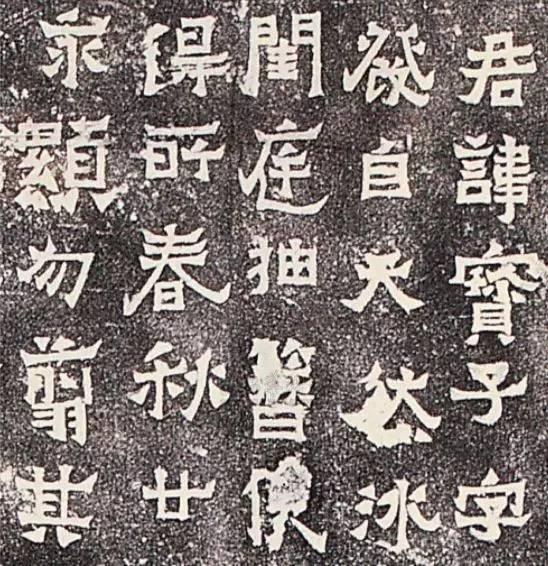 君諱寶子字
發自天然冰
閨庭抽簪俟
得所春秋廿
永顯勿翦其